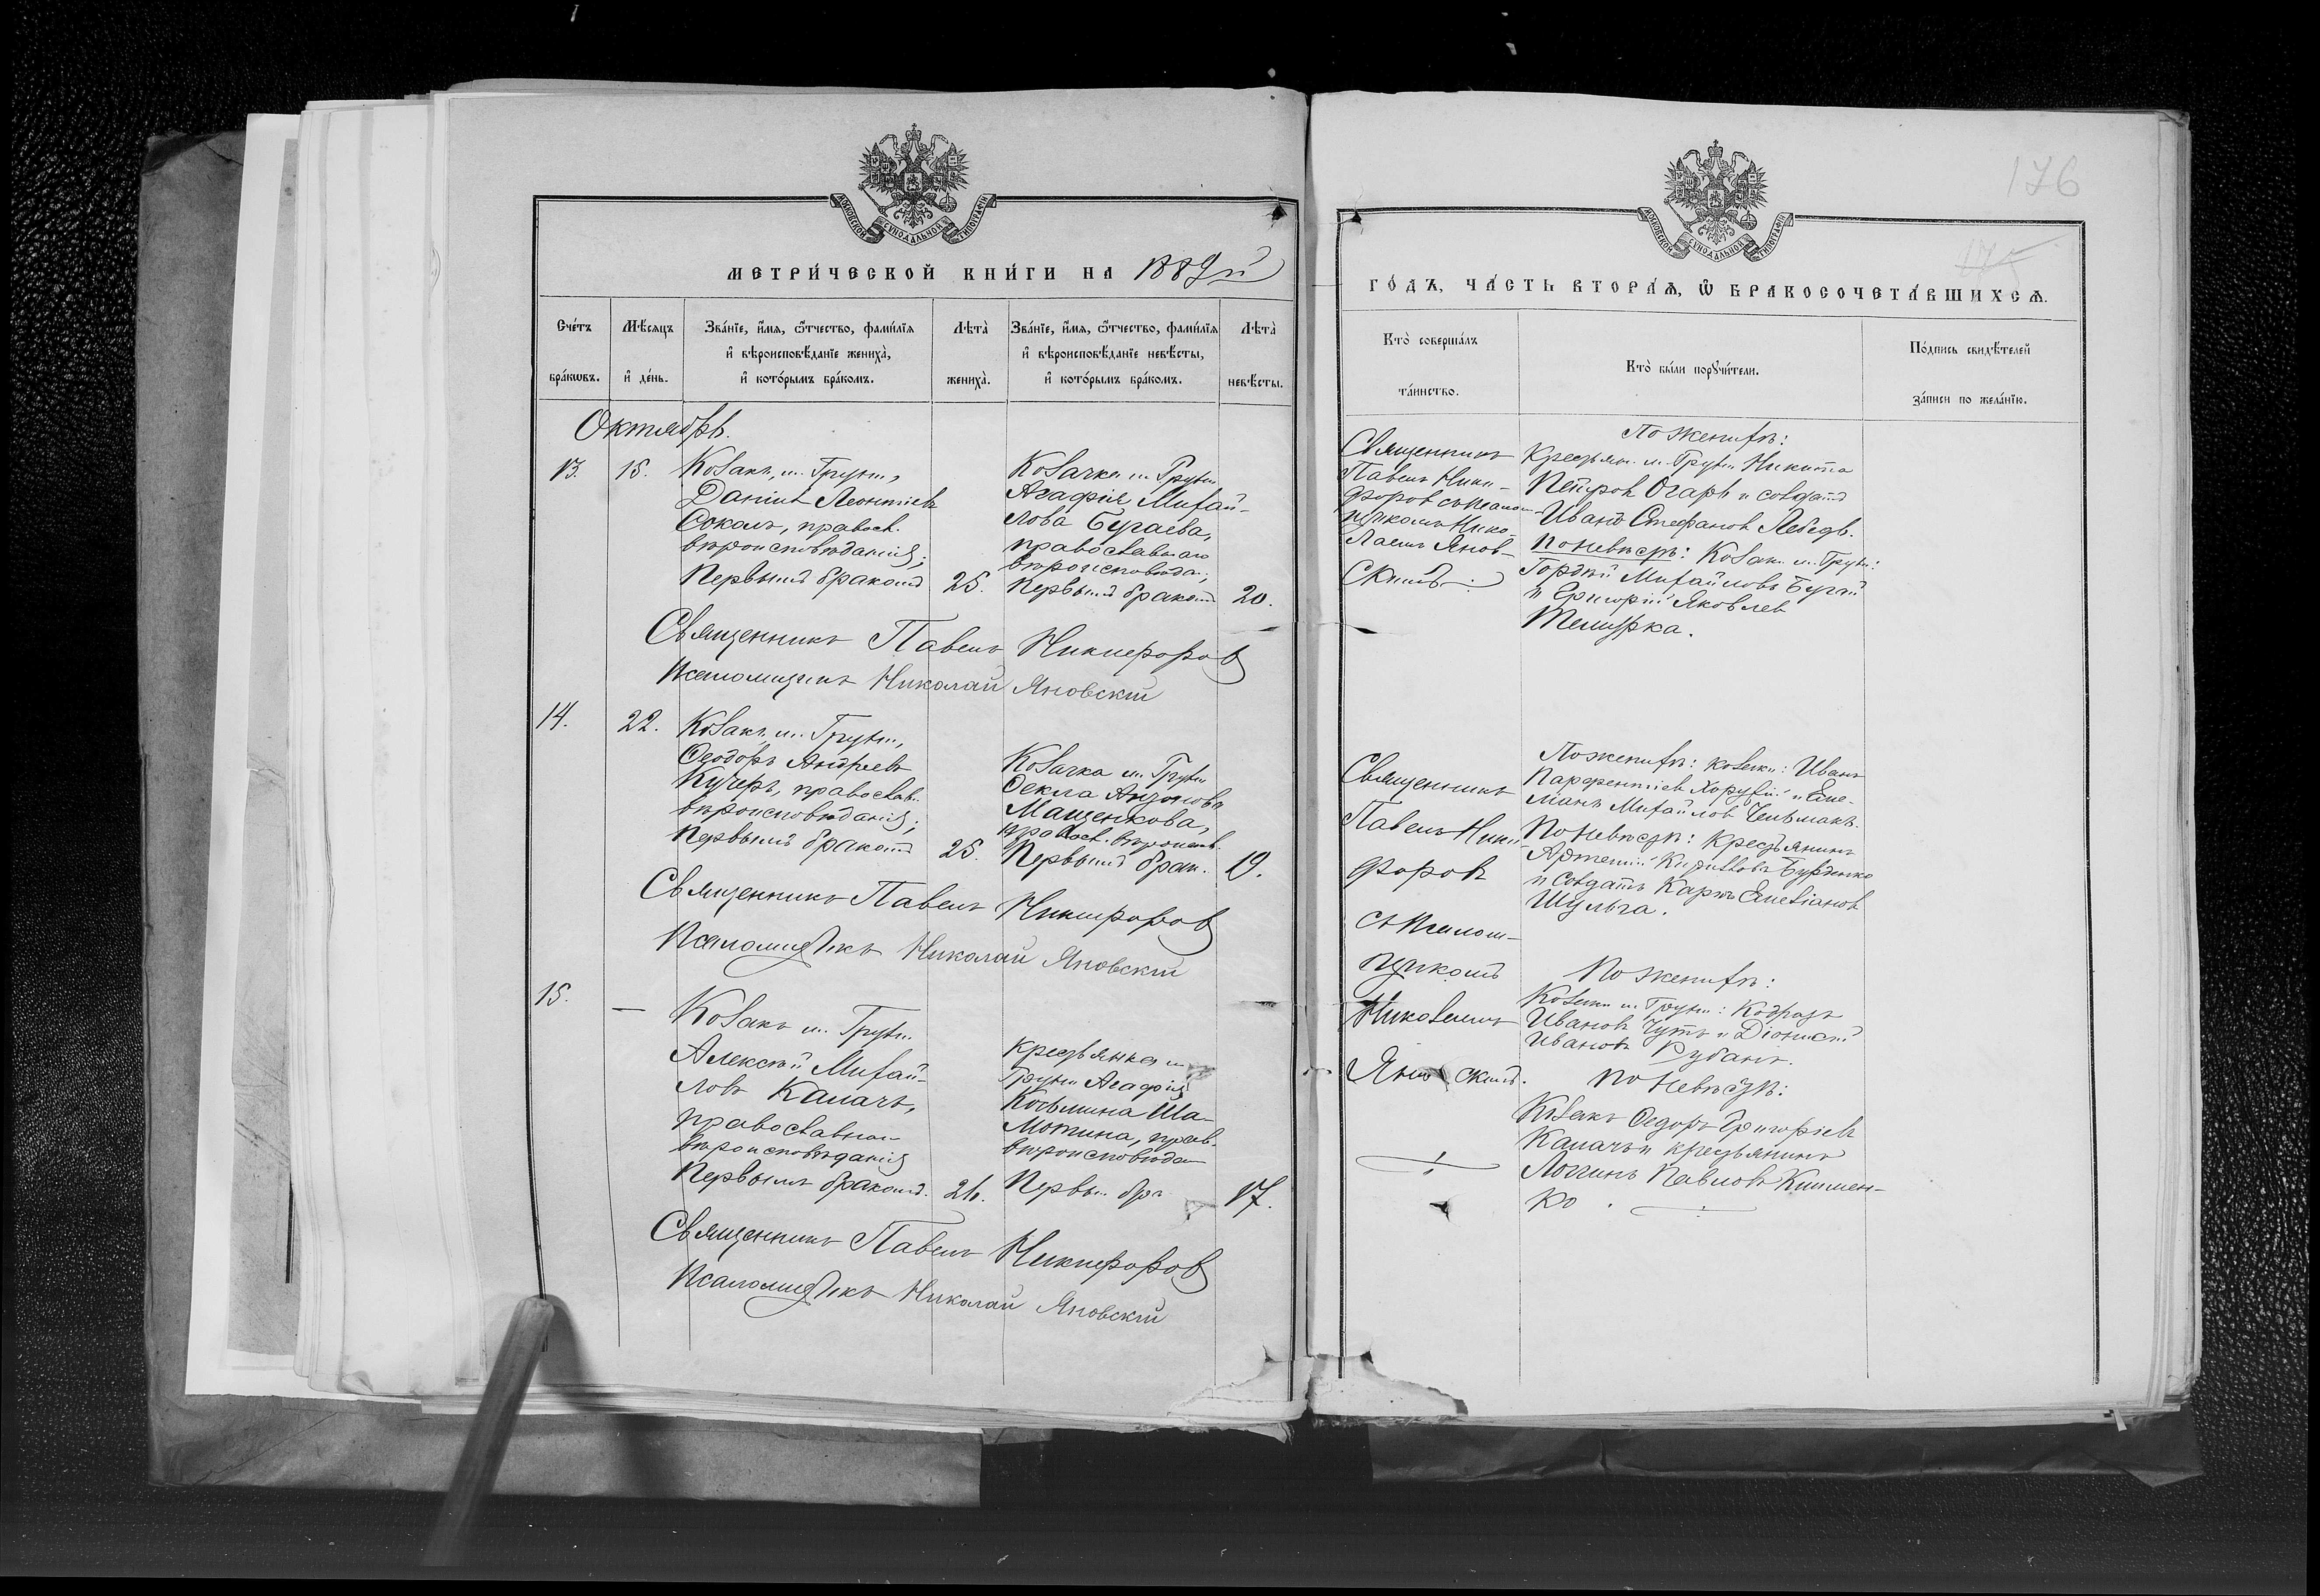 МОСКОВСКОЙ СѴНОДАЛЬНОЙ ТИПОГРАФІИ
МЕТРИ́ЧЕСКОЙ КНИ́ГИ НА 1889й
Сче́тъ бра́кωвъ.
Мѣ́сяцъ и҆ де́нь.
Зва́нїе, и҆́мя, ѻ҆́тчество, фами́лїя
и҆ вѣроисповѣ́данїе жениха̀,
и҆ кото́рымъ бра́комъ.
Лѣта̀ жениха̀.
Зва́нїе, и҆́мя, ѻ҆́тчество, фами́лїя
и҆ вѣроисповѣ́данїе невѣ́сты,
и҆ кото́рымъ бра́комъ.
Лѣта̀ невѣ́сты.
Октябрь.
13.
15.
Козакъ м. Груни,
Даніил Леонтіевъ
Соколъ, правосл.
вѣроисповѣданія;
Первымъ бракомъ
25.
Козачка м. Груни
Агафія Михай-
лова Бугаева,
православнаго
вѣроисповѣдан.;
Первымъ бракомъ
20.
Священникъ Павелъ Никифоровъ
Псаломщикъ Николай Яновскій
14.
22.
Козакъ м. Груни,
Ѳеодоръ Андреевъ
Кучеръ, православ.
вѣроисповѣданія;
Первымъ бракомъ
25.
Козачка м. Груни
Ѳекла
Мащенкова,
правосл. вѣроиспов.
Первымъ брак.
19.
Священникъ Павелъ Никифоровъ
Псаломщикъ Николай Яновскій
15.
—
Козакъ м. Груни
Алексѣй Михай-
ловъ Калачъ,
православнаго
вѣроисповѣданія
Первымъ бракомъ.
26.
Крестьянка м.
Груни Агафія
Косьмина Ша-
мотина, прав.
вѣроисповѣдан
Первы бра
17.
Священникъ Павелъ Никифоровъ
Псаломщикъ Николай Яновскій
176
175
МОСКОВСКОЙ СѴНОДАЛЬНОЙ ТИПОГРАФІИ
ГО́ДЪ, ЧА́СТЬ ВТОРА́Я, Ѽ БРАКОСОЧЕТА́ВШИХСЯ.
Кто̀ соверша́лъ
та́инство.
Кто̀ бы́ли порꙋчи́тели.
По́дпись свидѣ́телей
за́писи по жела́нїю.
Священникъ
Павелъ Ники-
форовъ съ псалом-
щикомъ Нико-
лаемъ Янов-
скимъ.
По женихѣ:
Крестьян. м. Груни Никита
Петровъ Огарь и солдатъ
Иванъ Стефановъ Лебедь.
По невѣстѣ: Козаки м. Груни:
Гордѣй Михайловъ Бугай
и Григорій Яковлев
Темирка.
Священникъ
Павелъ Ники-
форовъ
съ Псалом-
щикомъ
Николаемъ
Яно скимъ.
По женихѣ: козаки: Иванъ
Парфентіевъ Хорунжій и Еме-
ліанъ Михайлов Чельмакъ.
По невѣстѣ: Крестьянинъ
Артемій Кирилловъ Бурденко
и солдатъ Карпъ Емеліановъ
Шульга.
По женихѣ:
Козаки м. Груни: Кодратъ
Ивановъ Чуть и Діонисій
Ивановъ Рубанъ.
По невѣстѣ:
Козакъ Ѳедоръ Григорьевъ
Калачъ и крестьянинъ
Логгинъ Павловъ Климен-
ко.